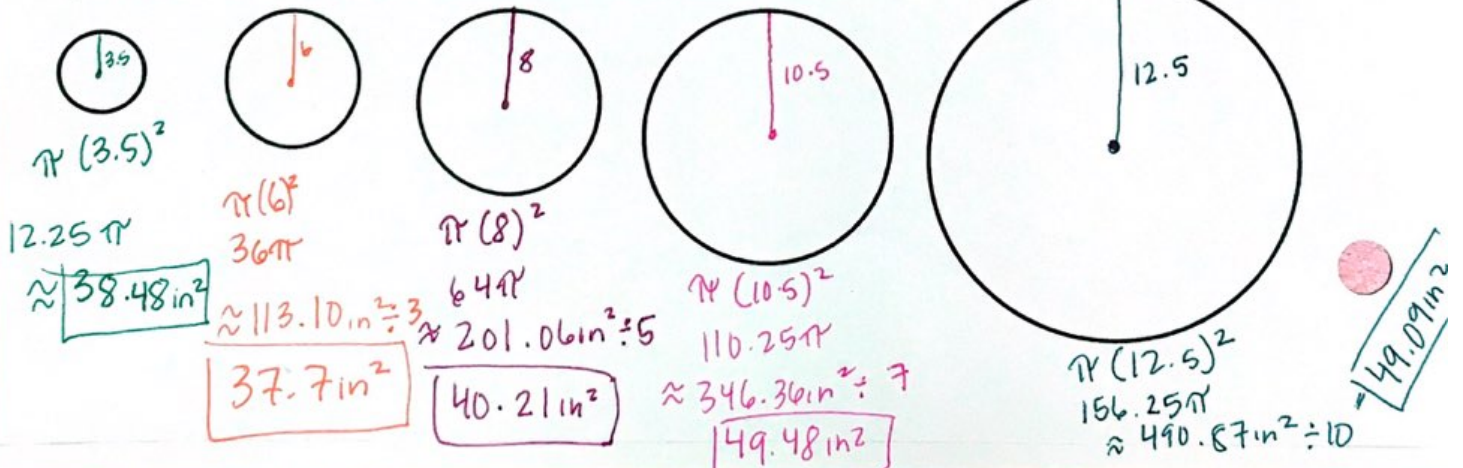 3.5
π (3.5)²
12.25 π
≈ 38.48 in²
6
π(6)²
36π
≈ 113.10 in² ÷ 3
37.7 in²
8
π (8)²
64π
≈ 201.06 in² ÷ 5
40.21 in²
10.5
π (10.5)²
110.25π
≈ 346.36 in² ÷ 7
49.48 in²
12.5
π (12.5)²
156.25π
≈ 490.87 in² ÷ 10
= 49.09 in²